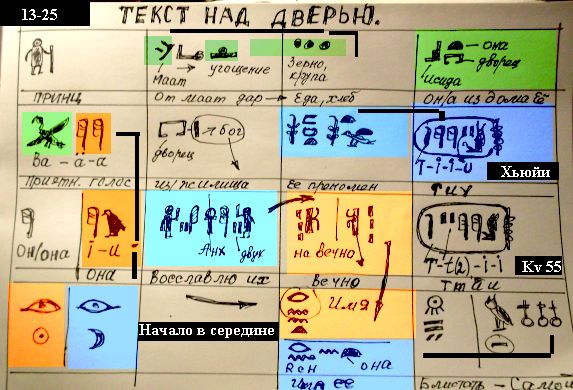 13-25
ТЕКСТ НАД ДВЕРЬЮ.
маат
угощение
Зерно, крупа
она
дворец
исида
ПРИНЦ
От маат дар → Еда, хлеб
он/а из дома Её
дворец
бог
Ва - а - а
Т-i-i-u
Хьюйи
Приятн. голос
из жилища
Ее преномен
Тиу
Он/она
i-u
Анх
двух
на вечно
Т-t(2)-i-i
Kv 55
Она
Восславлю их
Вечно
Ттаи
Начало в середине
Имя
Rен
она
Имя ее
Блистать - Самой